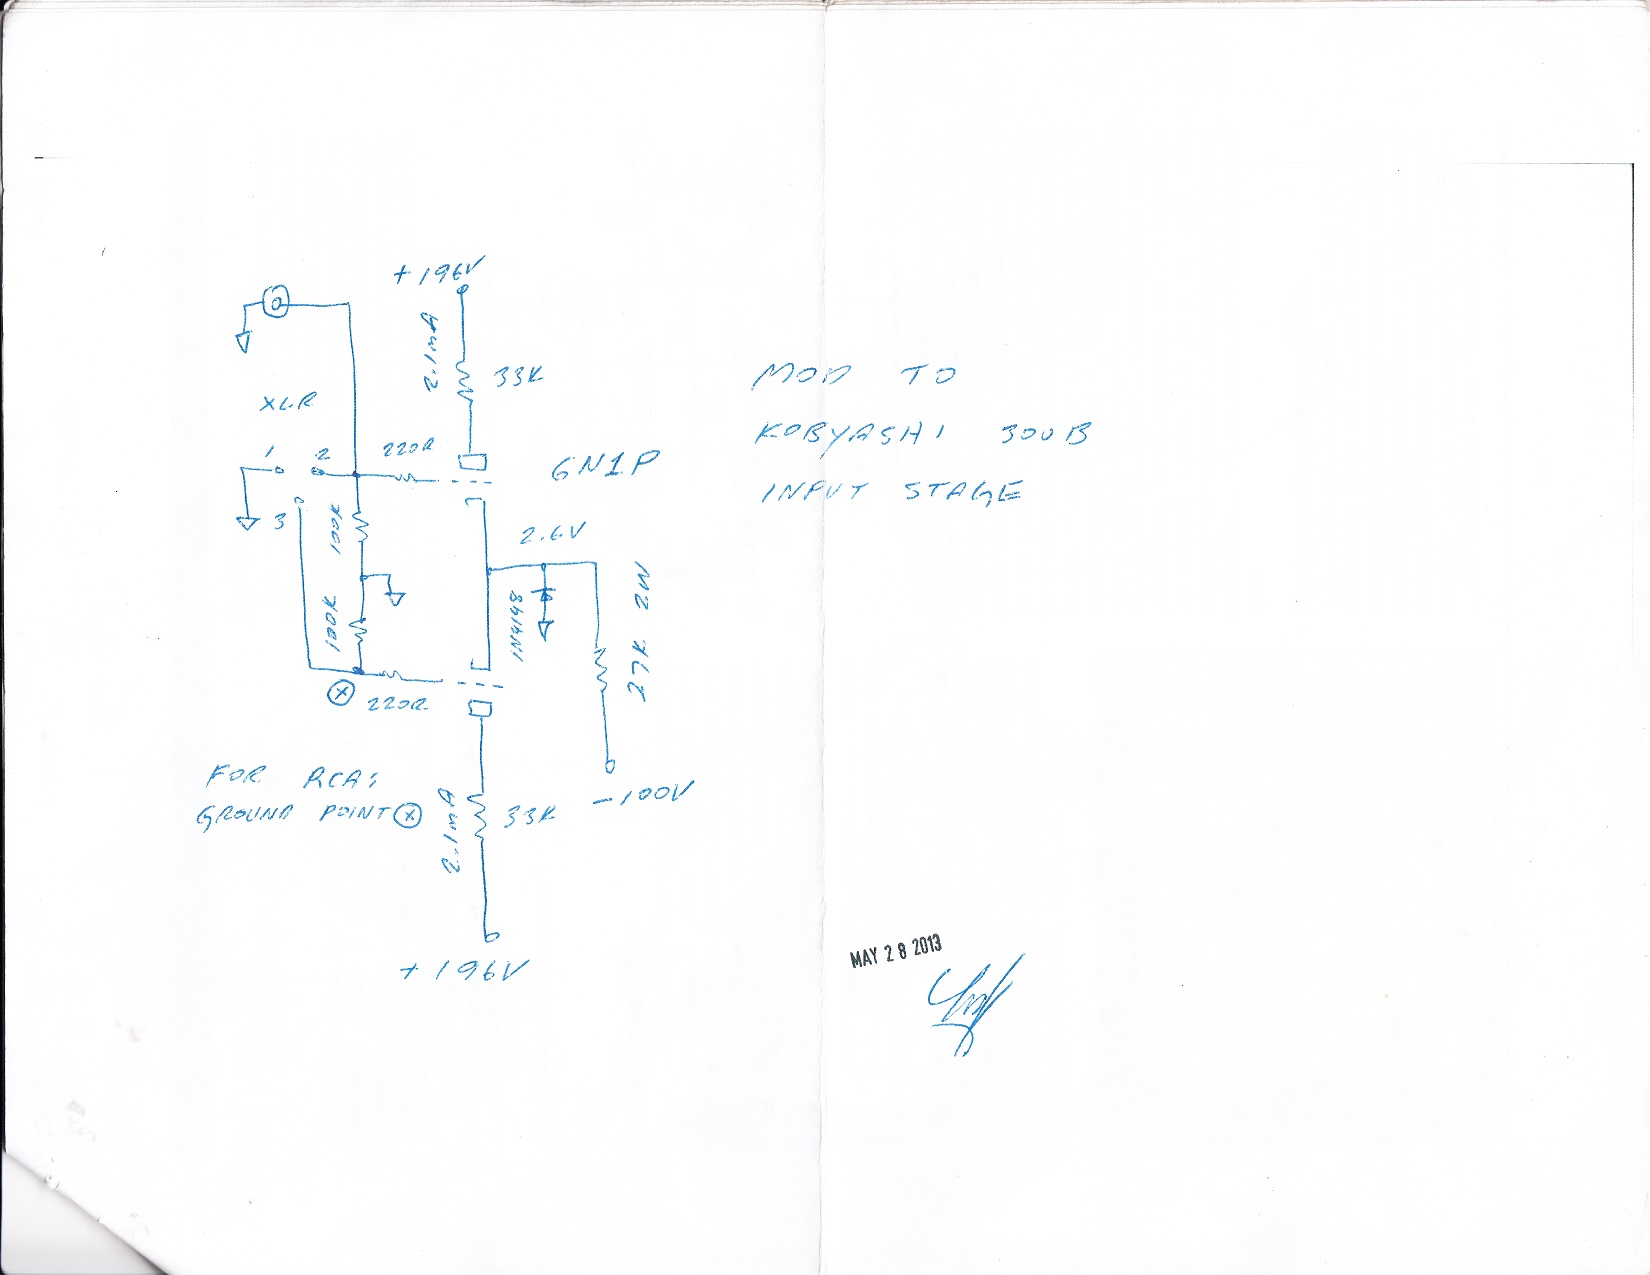 +196V
2.1mA
33K
XLR
1
2
220R
6N1P
3
100K
2.6V
1N4148
100K
220R
FOR RCA:
GROUND POINT X
2.1mA
33K
-100V
+196V
MOD TO
KOBYASHI 300B
INPUT STAGE
MAY 28 2013